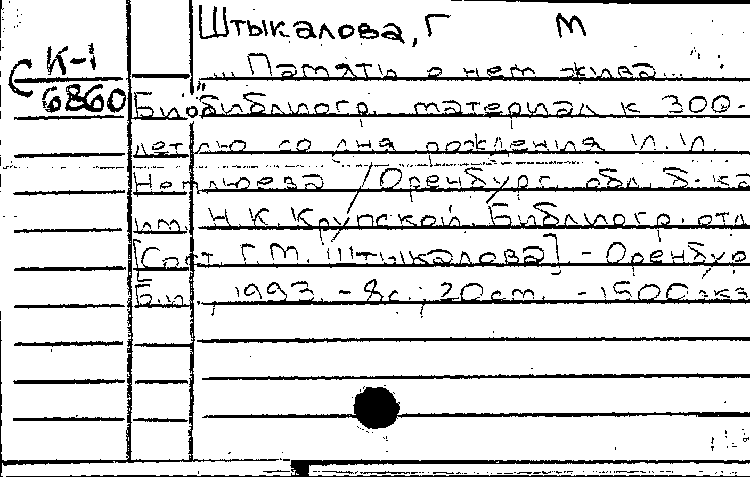 Штыкалова, Г М
К-1
6860
"... Память о нем жива...
Биобиблиогр. материал к 300-
летию со дня рождения И.И.
Неплюева / Оренбург. обл. б-ка
им. Н.К. Крупской. Библиогр. отд.
[Сост. Г.М. Штыкалова]. - Оренбур
Б.и., 1993. - 8с.; 20см. - 1500экз